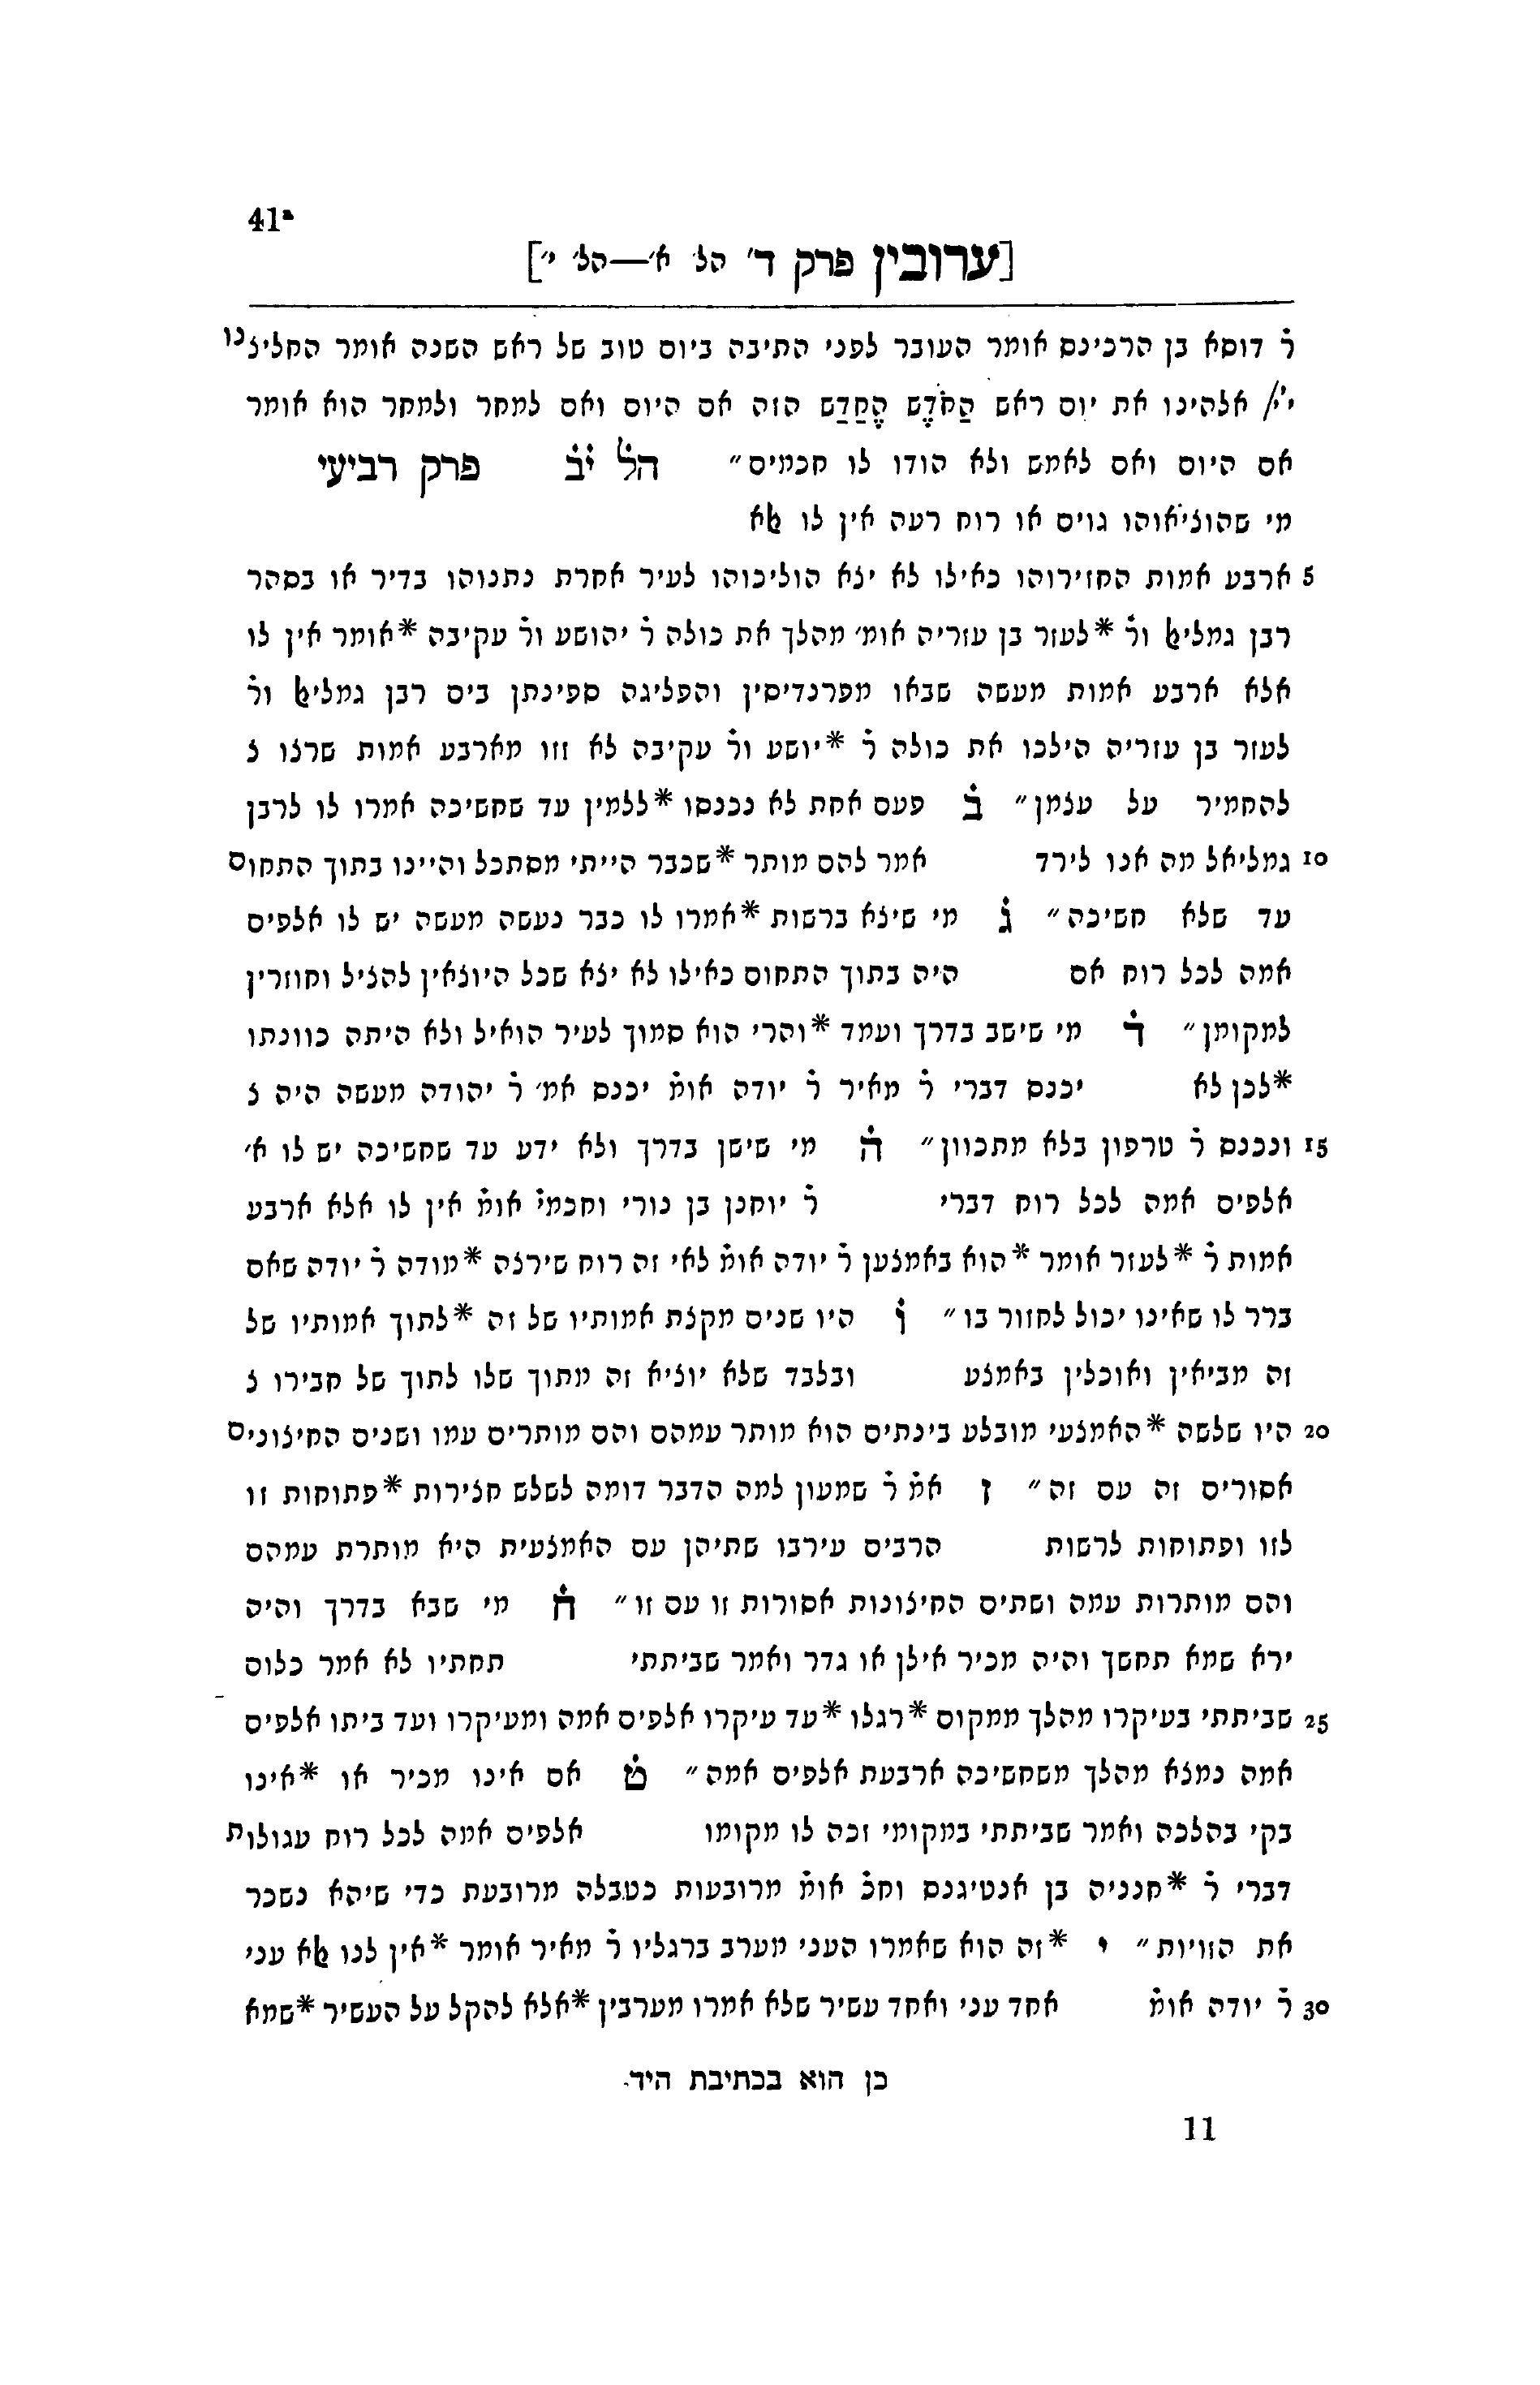 41ᵃ
[ערובין פרק ד׳ הל׳ א׳—הל׳ י׳]
ר̇ דוסא בן הרכינס אומר העובר לפני התיבה ביום טוב של ראש השנה אומר החליצנו
י״י אלהינו את יום ראש הַחֹדֶש הֶחַדַש הזה אם היום ואם למחר ולמחר הוא אומר
אם היום ואם לאמש ולא הודו לו חכמים״ הל̇ י̇ב̇ פרק רביעי
מי שהוציאוהו גוים או רוח רעה אין לו ﭏא
5 ארבע אמות החזירוהו כאילו לא יצא הוליכוהו לעיר אחרת נתנוהו בדיר או בסהר
רבן גמליﭏ ור̇ *לעזר בן עזריה אומ׳ מהלך את כולה ר̇ יהושע ור̇ עקיבה *אומר אין לו
אלא ארבע אמות מעשה שבאו מפרנדיסין והפליגה ספינתן בים רבן גמליﭏ ור̇
לעזר בן עזריה הילכו את כולה ר̇ *יושע ור̇ עקיבה לא זזו מארבע אמות שרצו צ
להחמיר על עצמן״ ב̇ פעם אחת לא נכנסו *ללמין עד שחשיכה אמרו לו לרבן
10 גמליאל מה אנו לירד אמר להם מותר *שכבר הייתי מסתכל והיינו בתוך התחום
עד שלא חשיכה״ ג̇ מי שיצא ברשות *אמרו לו כבר נעשה מעשה יש לו אלפים
אמה לכל רוח אם היה בתוך התחום כאילו לא יצא שכל היוצאין להציל וחוזרין
למקומן״ ד̇ מי שישב בדרך ועמד *והרי הוא סמוך לעיר הואיל ולא היתה כוונתו
*לכן לא יכנס דברי ר̇ מאיר ר̇ יודה אומ̇ יכנס אמ׳ ר̇ יהודה מעשה היה צ
15 ונכנס ר̇ טרפון בלא מתכוון״ ה̇ מי שישן בדרך ולא ידע עד שחשיכה יש לו א׳
אלפים אמה לכל רוח דברי ר̇ יוחנן בן נורי וחכמי̇ אומ̇ אין לו אלא ארבע
אמות ר̇ *לעזר אומר *הוא באמצען ר̇ יודה אומ̇ לאי זה רוח שירצה *מודה ר̇ יודה שאם
ברר לו שאינו יכול לחזור בו״ ו̇ היו שנים מקצת אמותיו של זה *לתוך אמותיו של
זה מביאין ואוכלין באמצע ובלבד שלא יוציא זה מתוך שלו לתוך של חבירו צ
20 היו שלשה *האמצעי מובלע בינתים הוא מותר עמהם והם מותרים עמו ושנים החיצונים
אסורים זה עם זה״ ז אמ̇ ר̇ שמעון למה הדבר דומה לשלש חצירות *פתוחות זו
לזו ופתוחות לרשות הרבים עירבו שתיהן עם האמצעית היא מותרת עמהם
והם מותרות עמה ושתים החיצונות אסורות זו עם זו״ ח̇ מי שבא בדרך והיה
ירא שמא תחשך והיה מכיר אילן או גדר ואמר שביתתי תחתיו לא אמר כלום
25 שביתתי בעיקרו מהלך ממקום *רגלו *עד עיקרו אלפים אמה ומעיקרו ועד ביתו אלפים
אמה נמצא מהלך משחשיכה ארבעת אלפים אמה״ ט̇ אם אינו מכיר או *אינו
בקי בהלכה ואמר שביתתי במקומי זכה לו מקומו אלפים אמה לכל רוח עגולות
דברי ר̇ *חנניה בן אנטיגנס וחכ̇ אומ̇ מרובעות כטבלה מרובעת כדי שיהא נשכר
את הזויות״ י *זה הוא שאמרו העני מערב ברגליו ר̇ מאיר אומר *אין לנו ﭏא עני
30 ר̇ יודה אומ̇ אחד עני ואחד עשיר שלא אמרו מערבין *אלא להקל על העשיר *שמא
כן הוא בכתיבת היד.
11